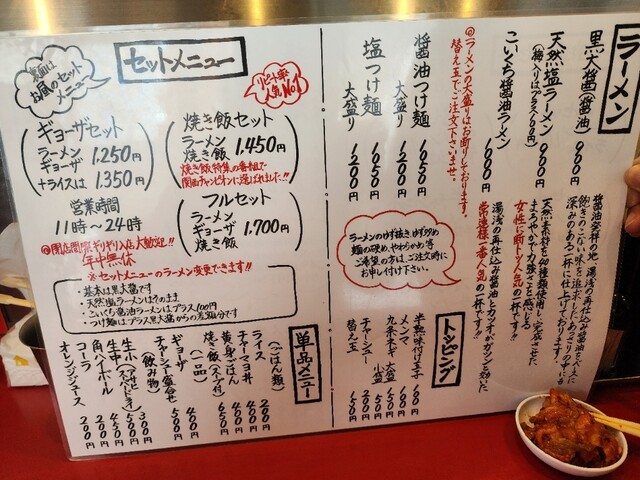 ラーメン
黒大醤(醤油) 900円
醤油発祥の地 湯浅の再仕込み醤油をベースに
飽きのこない味を追求したあっさりの中にも
深みのある一杯に仕上げております。
天然塩ラーメン 900円
(梅入りはプラス100円)
天然素材を40種類使用し、完成させた
まろやかで力強さこを感じる
女性に断トツ人気の一杯です!!
こいくち醤油ラーメン 1000円
湯浅の再仕込み醤油とカツオがガツンと効いた
常連様一番人気の一杯です!!
◎ラーメンの大盛りはお断りしております。
替え玉でご注文下さいませ。
醤油つけ麺 1050円
大盛り 1200円
塩つけ麺 1050円
大盛り 1200円
ラーメンのゆず抜き・ゆず多め
麺の硬め、やわらかめ等
ご希望の方は ご注文時に
お申し付け下さい。
トッピング
半熟味付玉子 100円
メンマ 100円
九条ネギ 大盛
小盛
チャーシュー
替え玉 150円
裏面は
お昼のセット
メニュー
セットメニュー
リピート率
人気No.1
ギョーザセット
ラーメン
ギョーザ 1.250円
+ライスは 1.350円
焼き飯セット
ラーメン
焼き飯 1.450円
焼き飯特集の番組で
関西チャンピオンに選ばれました!!
フルセット
ラーメン
ギョーザ
焼き飯 1.700円
営業時間
11時〜24時
◎閉店間際ギリギリ入店大歓迎!!
年中無休
※セットメニューのラーメン変更できます!!
・基本は黒大醤です
・天然塩ラーメンはそのまま
・こいくち醤油ラーメンはプラス100円
・つけ麺はプラス黒大醤からの差額分です
単品メニュー
(ごはん類)
ライス 200円
チャーマヨ丼 400円
黄身ごはん
焼き飯(スープ付)
(一品)
ギョーザ 400円
チャーシュー盛合せ 500円
(飲み物)
生小(アサヒスーパードライ) 300円
生中 500円
角ハイボール 400円
コーラ 200円
オレンジジュース 200円